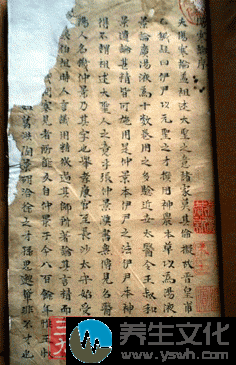 寒論序
夫傷寒論蓋祖述大聖人之意諸家莫其倫擬故晉皇甫
乙鍼經曰伊尹以元聖之才撰用神農本草以為湯液
景論廣湯液為十數卷用之多驗近世太醫令王叔和
景遺論甚精皆可施用是仲景本伊尹之法伊尹本神
得不謂祖述大聖人之意乎張仲景漢書無傳見名醫
名機仲景乃其字也舉孝廉官至長沙太守始受
伯祖時人言識用精微過其師所著論其言精而
寡見者所能及自仲景于今八百餘年惟王
葛洪陶景胡洽徐之才孫思邈輩非不才也
养生文化
www.yswh.com